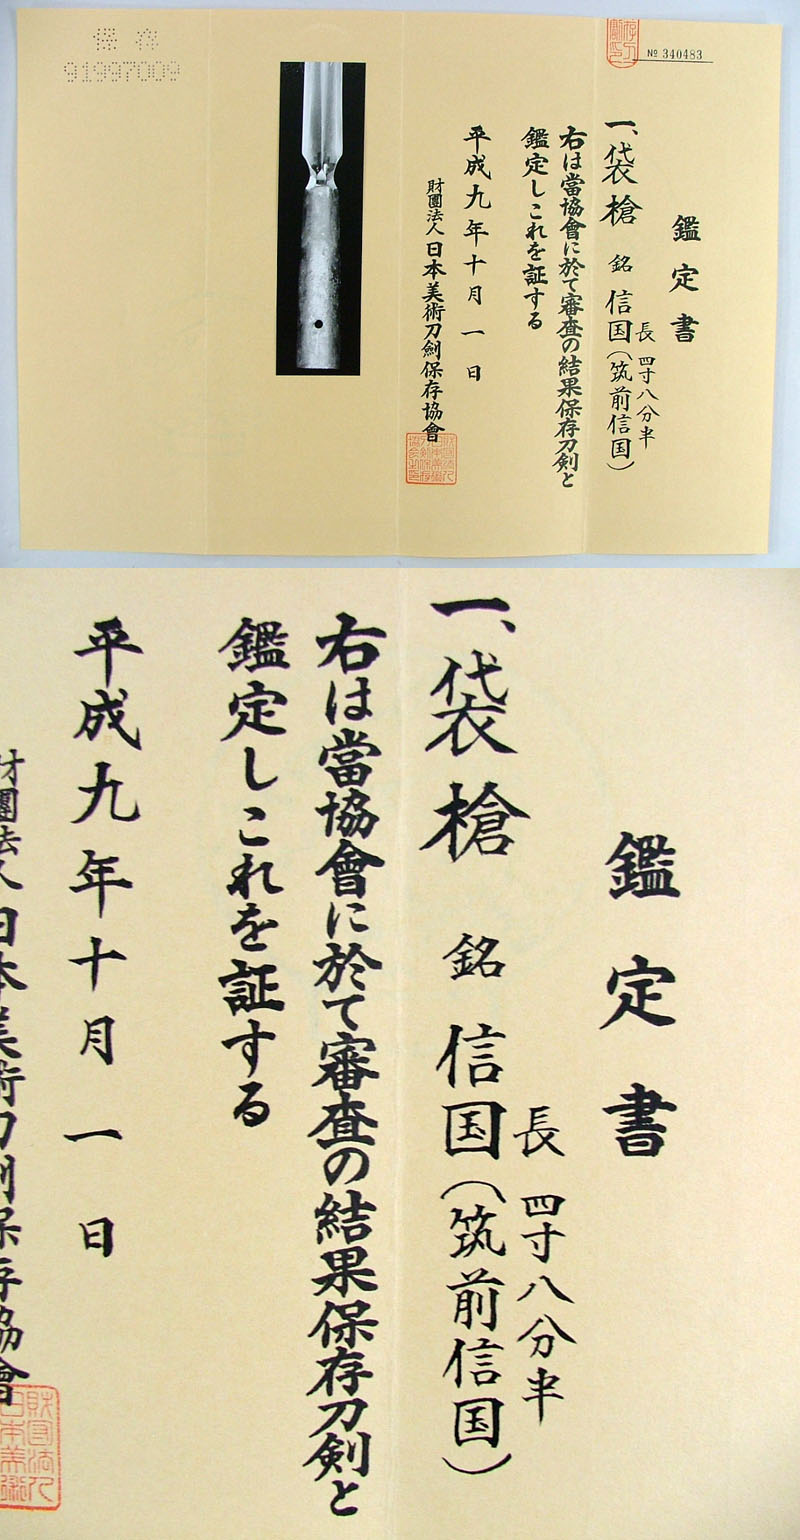 保存
91997009
№ 340483
鑑定書
長 四寸八分半
一、袋槍 銘 信国(筑前信国)
右は當協會に於て審査の結果保存刀剣と
鑑定しこれを証する
平成九年十月一日
財團法人日本美術刀劍保存協會
鑑定書
長 四寸八分半
一、袋槍 銘 信国(筑前信国)
右は當協會に於て審査の結果保存刀剣と
鑑定しこれを証する
平成九年十月一日
財團法人日本美術刀劍保存協會